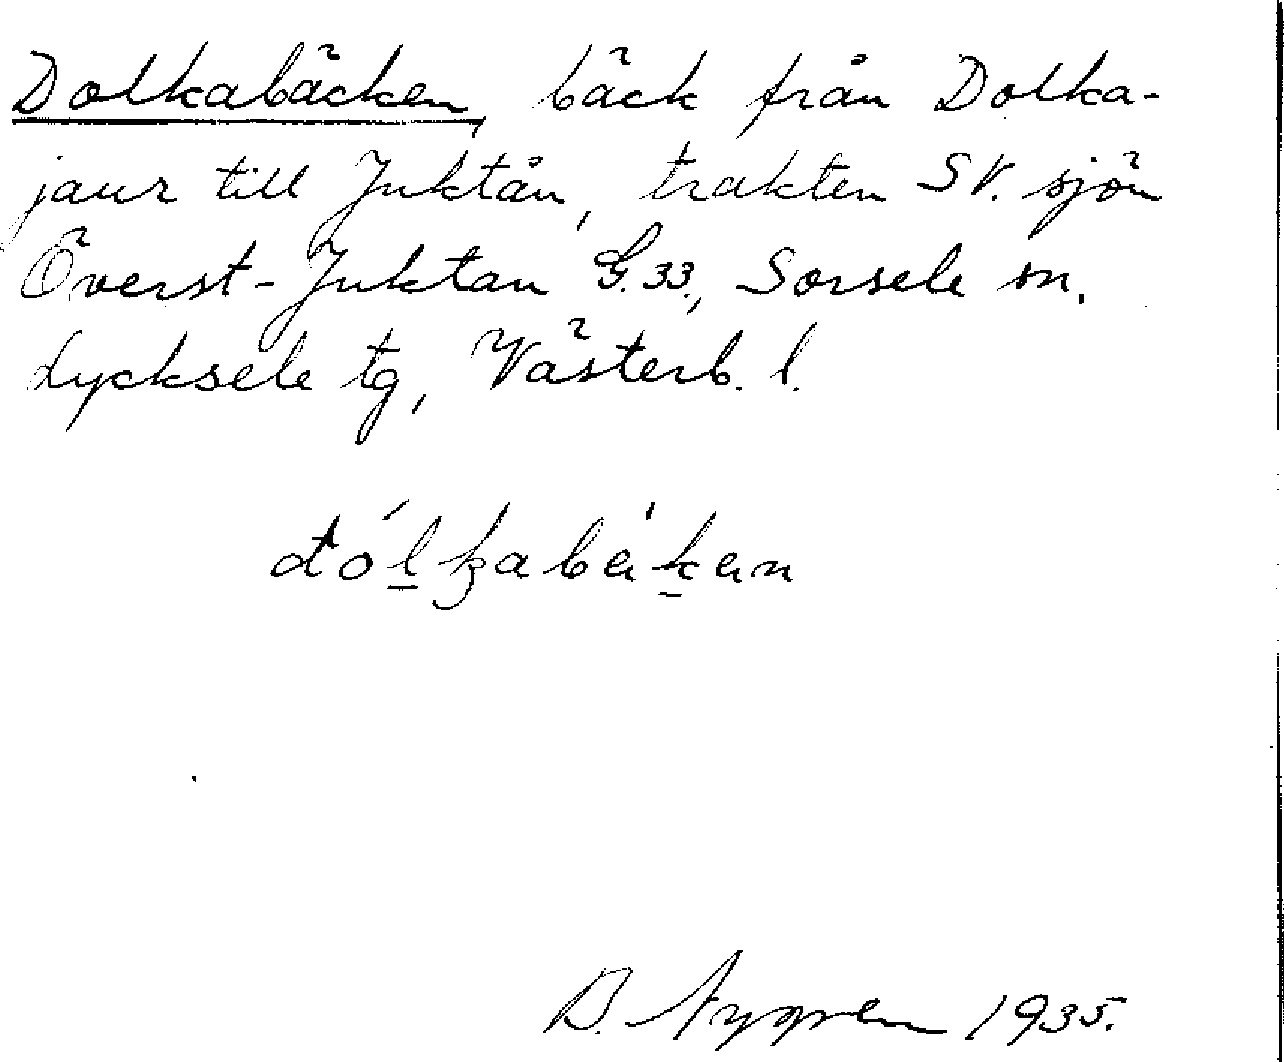 Dolkabäcken, bäck från Dolka-
jaur till Juktån, trakten SV. sjön
Överst-Juktan G. 33., Sorsele sn.
Lycksele tg, Västerb. l.
B. Nygren 1935.